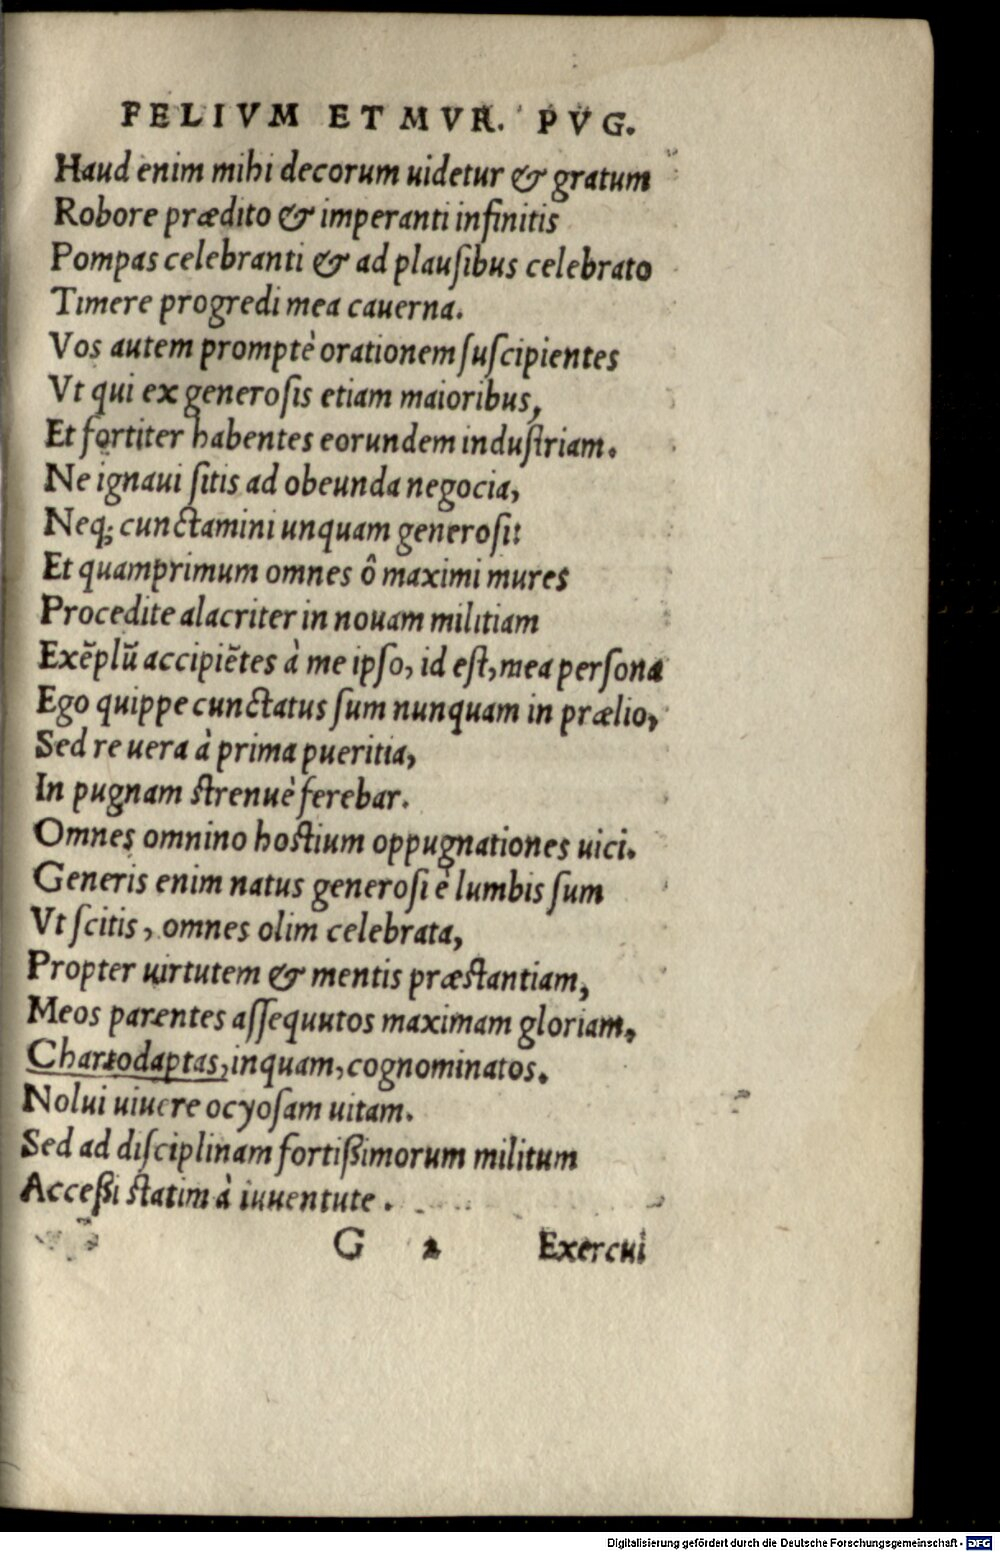 FELIVM ET MVR. PVG.
Haud enim mihi decorum uidetur & gratum
Robore prædito & imperanti infinitis
Pompas celebranti & ad plauſibus celebrato
Timere progredi mea cauerna.
Vos autem promptè orationem ſuſcipientes
Vt qui ex generoſis etiam maioribus,
Et fortiter habentes eorundem induſtriam.
Ne ignaui ſitis ad obeunda negocia,
Neq; cunctamini unquam generoſi:
Et quamprimum omnes ô maximi mures
Procedite alacriter in nouam militiam
Exẽplũ accipiẽtes à me ipſo, id eſt, mea perſona
Ego quippe cunctatus ſum nunquam in prælio,
Sed re uera à prima pueritia,
In pugnam ſtrenuè ferebar.
Omnes omnino hoſtium oppugnationes uici.
Generis enim natus generoſi è lumbis ſum
Vt ſcitis, omnes olim celebrata,
Propter uirtutem & mentis præſtantiam,
Meos parentes aſſequutos maximam gloriam,
Chartodaptas, inquam, cognominatos.
Nolui uiuere ocyoſam uitam.
Sed ad diſciplinam fortißimorum militum
Acceßi ſtatim à iuuentute.
G 2 Exercui
Digitalisierung gefördert durch die Deutsche Forschungsgemeinschaft - DFG